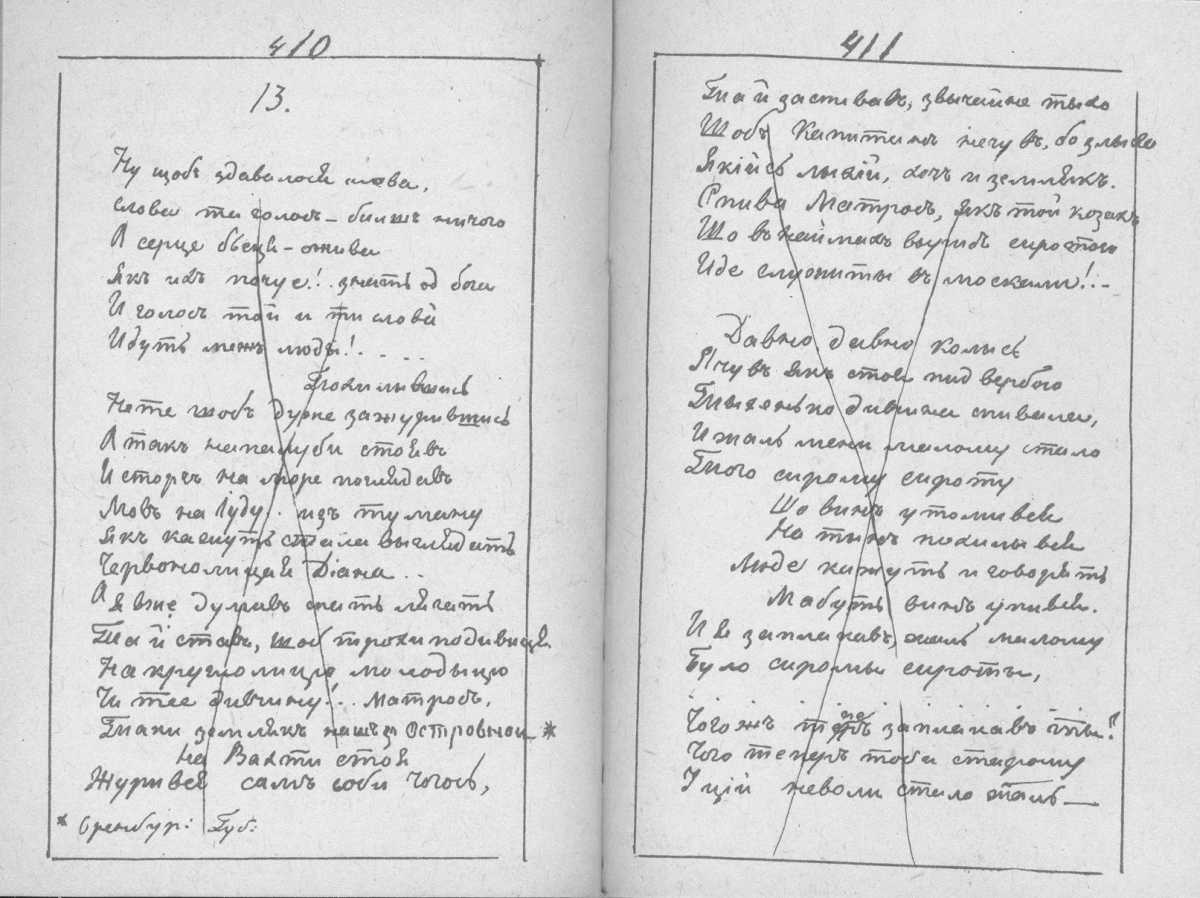 410
13.
Ну щобъ здавалося слова,
Слова та голосъ — билшъ ничого
А серце бьеця — ожива
Якъ ихъ почує!.. знать од бога
И голосъ той и ти слова
Идуть межъ люди!....
Похилившись
Не те щобъ дуже зажурившись
А такъ на палуби стоявъ
И сторч на море поглядавъ
Мовъ на Іуду.. изъ туману
Якъ кажуть стала выглядать
Червонолицая Діана..
А я вже думавъ спать лягать
Та й ставъ, щоб трохи подивиця
На круглолицю молодыцю
Чи тее дивчину!.. Матросъ,
Таки землякъ нашъ з Островной *
На Вахти стоя
Журився самъ соби чогось,
* Оренбур: Губ:
411
Та й заспивавъ, звычайне тыхо
Щобъ Капитанъ не чувъ, бо злый
Якійсь лыхій, хочъ и землякъ.
Спива Матросъ, якъ той козакъ
Що въ наймахъ вырисъ сиротою
Иде служиты въ москали!..
Давно давно колись
Я чувъ якъ стоя пид вербою
Тыхенько дивчина спивала,
И жаль мени малому стало
Того сирому сироту
Що винъ утомився
На тынъ похилывся
Люде кажуть и говорять
Мабуть винъ упився.
И я заплакавъ, жаль малому
Було сиромы сироты,
Чого жъ теперъ заплакавъ ты?
Чого теперъ тоби старому
У цій неволи стало жаль —